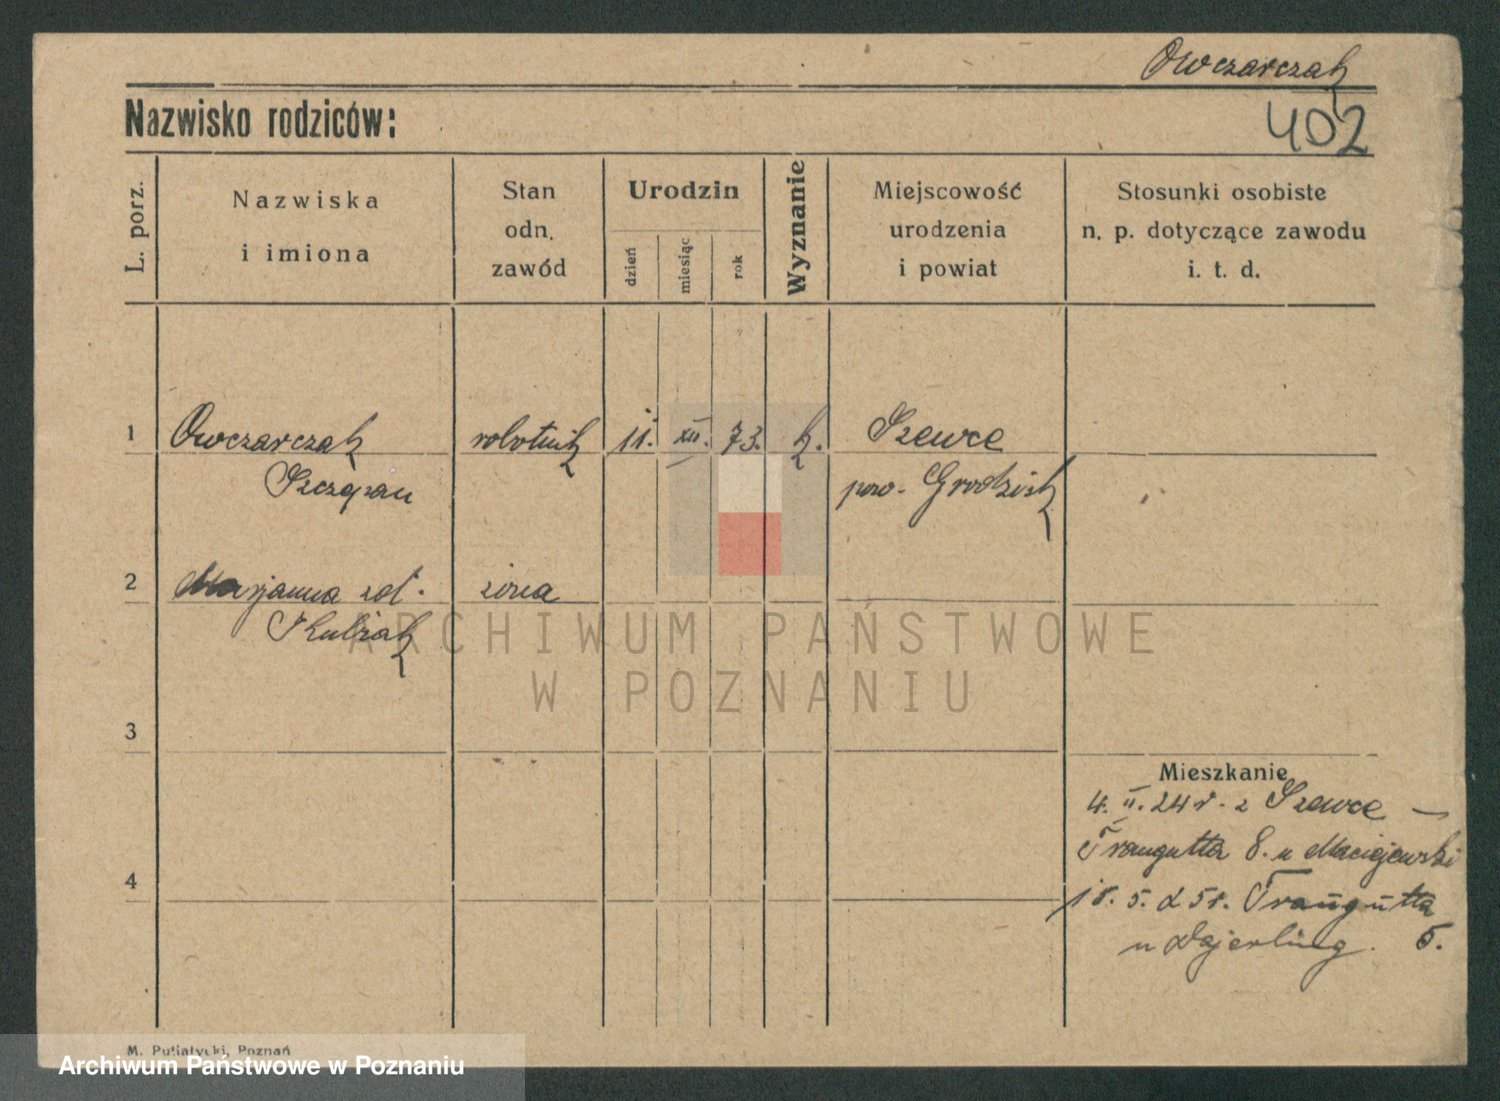 Owczarczak
Nazwisko rodziców:
402
L. porz.
Nazwiska
i imiona
Stan
odn.
zawód
Urodzin
dzień
miesiąc
rok
Wyznanie
Miejscowość
urodzenia
i powiat
Stosunki osobiste
n. p. dotyczące zawodu
i. t. d.
1 Owczarczak robotnik 11. XII. 73. k. Szewce
Szczepan pow. Grodzisk
2 Marjanna żona
ARCHIWUM PAŃSTWOWE
W POZNANIU
3
Mieszkanie
4. II. 24 r. z Szewce —
Traugutta 8. u Maciejewski
4
18. 5. 25r. Traugutta
u 5.
M. Putiatycki, Poznań
Archiwum Państwowe w Poznaniu